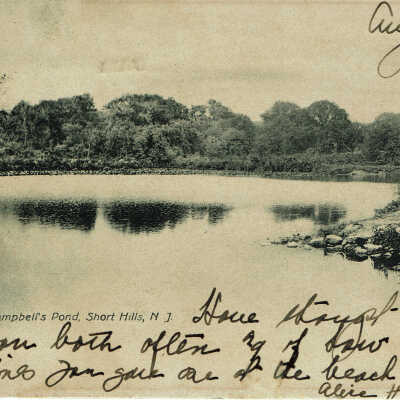 Aug
ampbell's Pond, Short Hills, N. J.
Have thought
on both often & of how
ines you gave me at the beach
Alice H